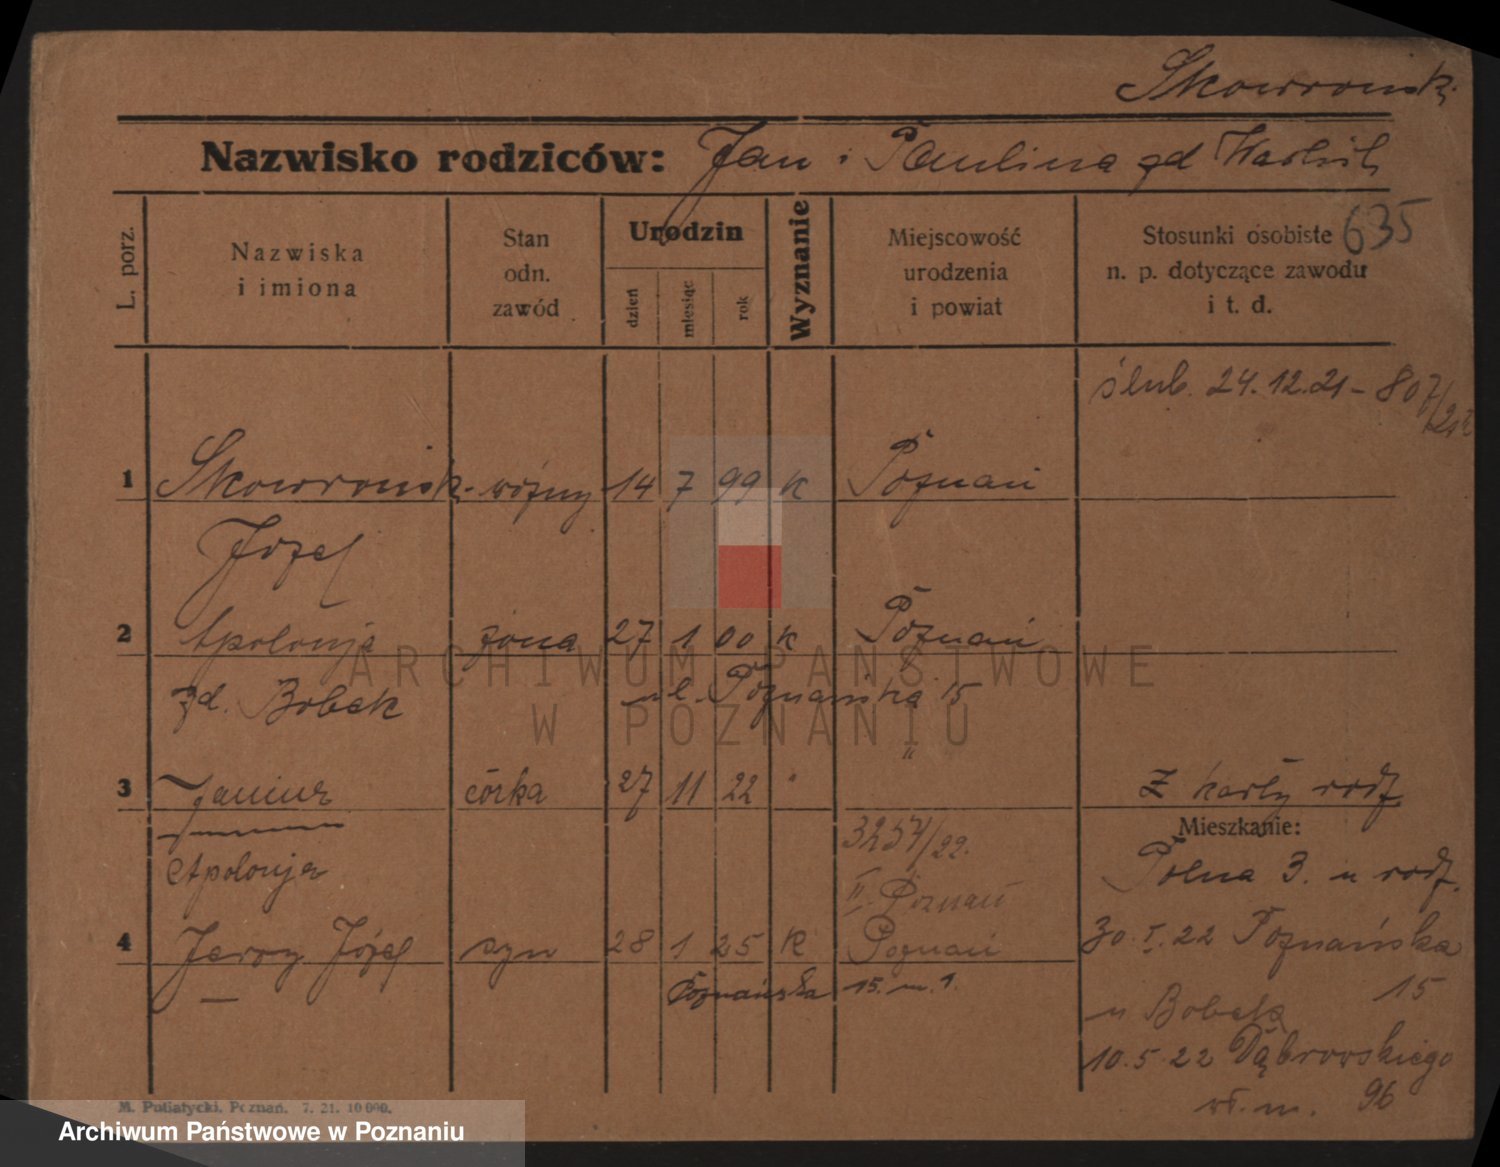 Skowroński
Nazwisko rodziców: Jan i Paulina zd
635
L. porz.
Nazwiska
i imiona
Stan
odn.
zawód
Urodzin
dzień
miesiąc
rok
Wyznanie
Miejscowość
urodzenia
i powiat
Stosunki osobiste
n. p. dotyczące zawodu
i t. d.
ślub. 24.12.21 - 807/21
1 Skowroński woźny 14 7 99 K Poznań
Józef
2 Apolonja żona 27 1 00 K Poznań
zd. Bobek ul. Poznańska 15
"
3 Janina córka 27 11 22 " Z karty rodz.
3254/22. Mieszkanie:
Apolonja Polna 3. u rodz.
II Poznań
4 Jerzy Józef syn 28 1 25 K Poznań 30.I.22 Poznańska
Poznańska 15. m. 1. 15
u Bobek
10.5.22 Dąbrowskiego
wł. m. 96
M. Putiatycki, Poznań. 7. 21. 10 000.
ARCHIWUM PAŃSTWOWE
W POZNANIU
Archiwum Państwowe w Poznaniu